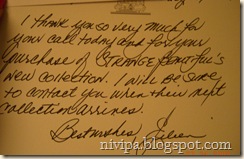 I thank you so very much for
your call today and for your
purchase of STRANGE Beautiful's
new collection. I will be sure
to contact you when their next
collection arrives.
Best wishes,
nivipa.blogspot.com